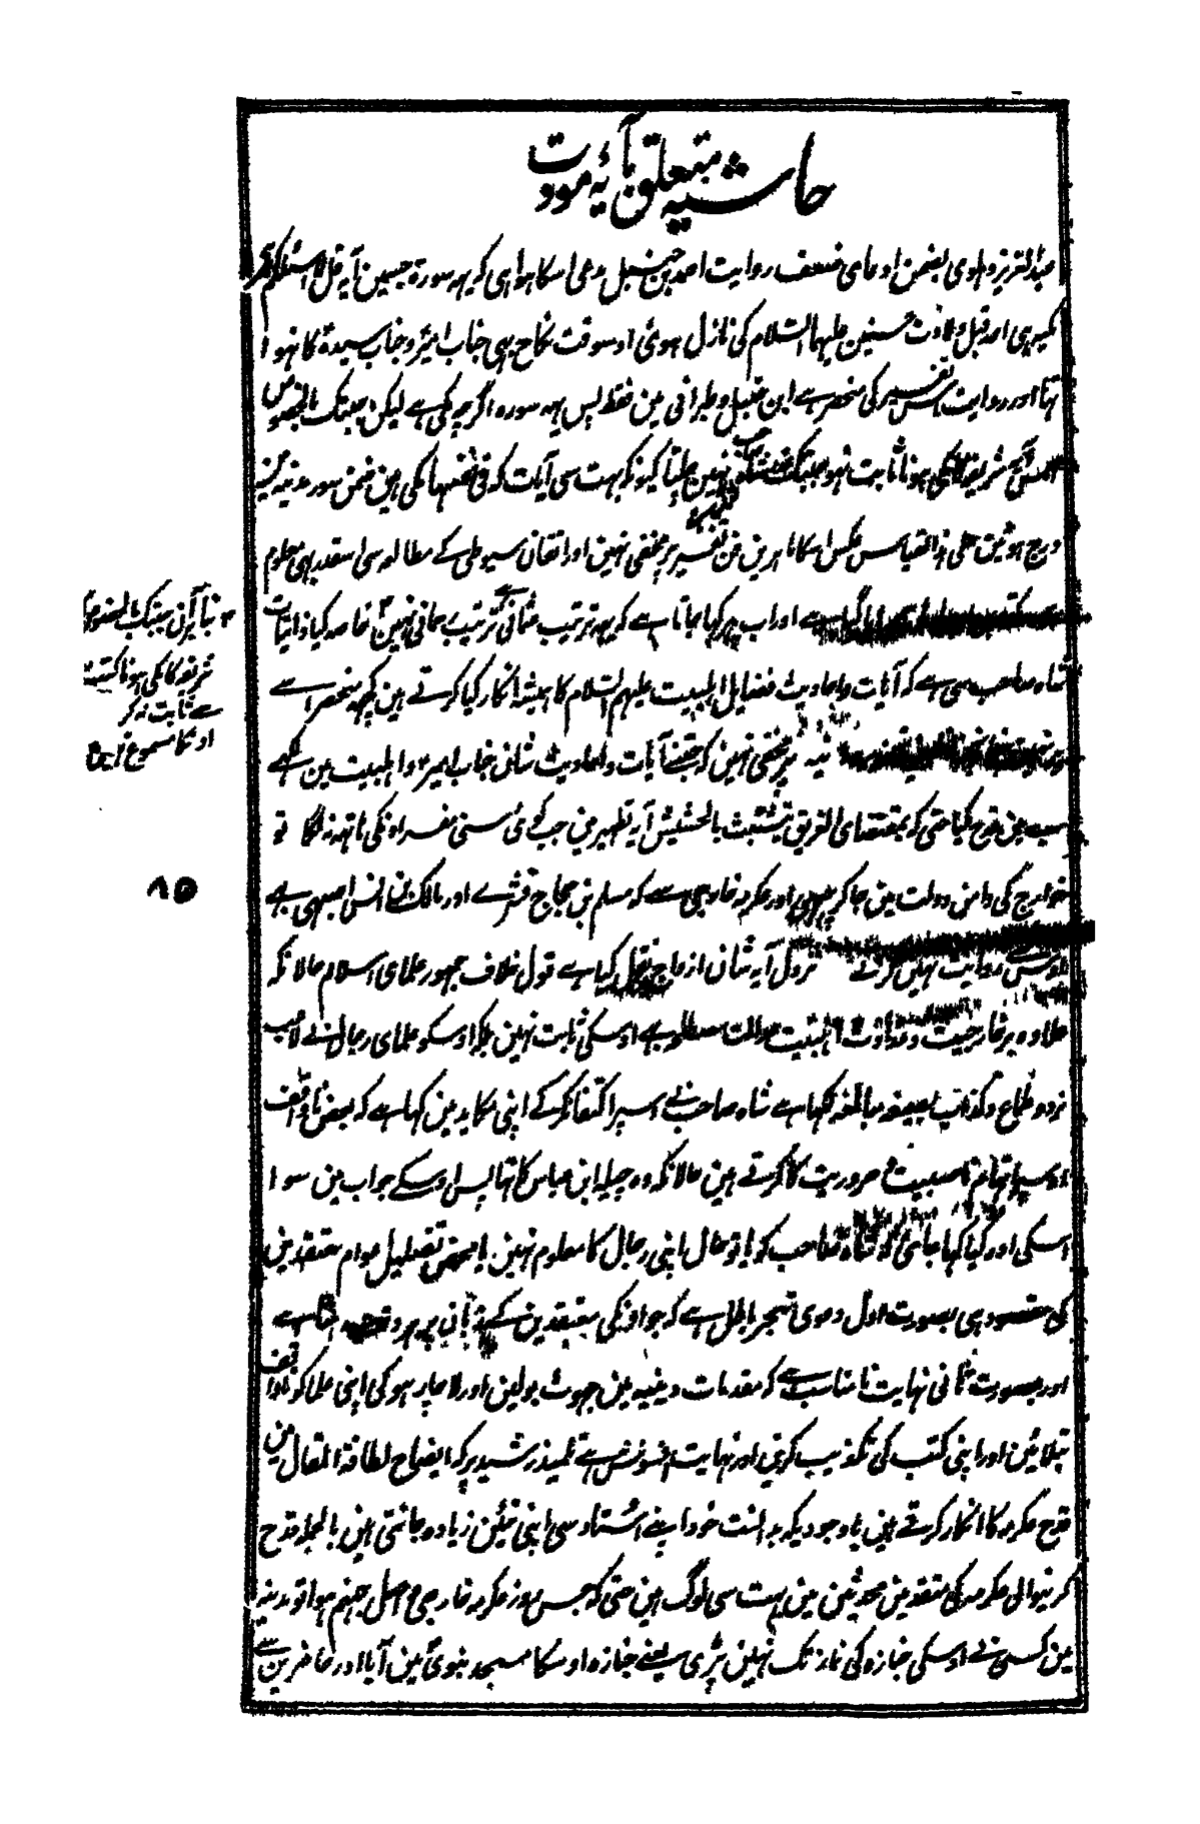 حاشیہ متعلق بآیۂ مودت
عبدالعزیز دہلوی بضمن ادعای ضعف روایت احمد بن حنبل مدعی اسکا ہوا ہی کہ یہہ سورۃ جسمین آیہ قل لا اسئلکم
مکیہ ہی اور قبل ولادت حسنین علیہما السلام کی نازل ہوئی اوسوقت نکاح بھی جناب امیرؑ و جناب سیدہؑ کا نہوا
تہا اور روایت اس تفسیر کی منحصر ہے ابن حنبل و طبرانی مین فقط پس یہہ سورہ اگرچہ مکی ہے لیکن جبتک بالخصوص
اس آیۂ شریفہ کا مکی ہونا ثابت نہو جبتک نہین چلتا کیونکہ بہت سی آیات کہ فی نفسہا مکی ہین ضمن سور مدنیہ مین
درج ہوئین علی ہذا القیاس عکس اسکا ماہرین فن تفسیر پر مخفی نہین اور اتقان سیوطی کے مطالعہ سی اسقدر بھی معلوم
اور اب پہر کہا جاتا ہے کہ یہہ ترتیب عثمانی ہے ترتیب سبحانی نہین خاصہ کیا ذاتیات
شاہ صاحب سی ہے کہ آیات و احادیث فضایل اہلبیت علیہم السلام کا ہمیشہ انکار کیا کرتے ہین کچھ منحصر اسے
پر مخفی نہین کہ جتنے آیات و احادیث شان جناب امیرؑ و اہلبیت مین تھے
سب مین قدح کیا حتی کہ بمقتضای الغریق یتشبث بالحشیش آیہ تطہیر مین جب کوئی سنی مفسر اونکی ہاتہہ نہ لگا تو
خوارج کی دامن دولت مین جا کر چھپی اور عکرمہ خارجی سے کہ مسلم بن حجاج قشری اور مالک بن انس اصبحی بھی
اوس سے روایت نہین کرتے نزول آیہ شان ازواج نقل کیا ہے قول خلاف جمہور علمای اسلام حالانکہ
علاوہ بر خارجیت و عداوت اہلبیت عدالت مطلوبہ بھی اوسکی ثابت نہین بلکہ اوسکو علمای رجال نے لاعب
نرد و طماع و کذاب بصیغہ مبالغہ لکہا ہے شاہ صاحب نے اسپر اکتفا نکر کے اپنی مکاید مین کہا ہے کہ بعض ناواقف
اوسپر اتہام ناصبیت و حروریت کا کرتے ہین حالانکہ وہ چیلہ ابن عباس کا تہا پس اوسکے جواب مین سوا
اسکی اور کیا کہا جائی کہ شاہ صاحب کو یا تو حال اپنی رجال کا معلوم نہین یا محض تضلیل عوام معتقدین
کی مقصود ہی بصورت اول دعوی تبحر باطل ہے کہ جو اونکی معتقدین کے زبان پر ہر وقت رہتا ہے
اور بصورت ثانی نہایت نامناسب ہے کہ مقدمات دینیہ مین جہوٹ بولین اور لاچار ہو کی اپنی علما کو ناواقف
بتلائین اور اپنی کتب کی تکذیب کرین اور نہایت افسوس ہے تلمیذ رشید پر کہ ایضاح لطافۃ المقال مین
قدح عکرمہ کا انکار کرتے ہین باوجودیکہ بدانست خود اپنے استاد سی اپنی تئین زیادہ جانتی ہین بالجملہ قدح
کرنیوالی عکرمہ کی متقدمین محدثین مین بہت سی لوگ ہین حتی کہ جس روز عکرمہ خارجی واصل جہنم ہوا تو مدینہ
مین کسی نے اوسکی جنازہ کی نماز تک نہین پڑہی یعنے جنازہ اوسکا مسجد نبوی مین آیا اور حاضرین سے
شریفہ کا مکی ہونا کتب
سے ثابت نہ کر
اونکا مسموع نہین
۸۵